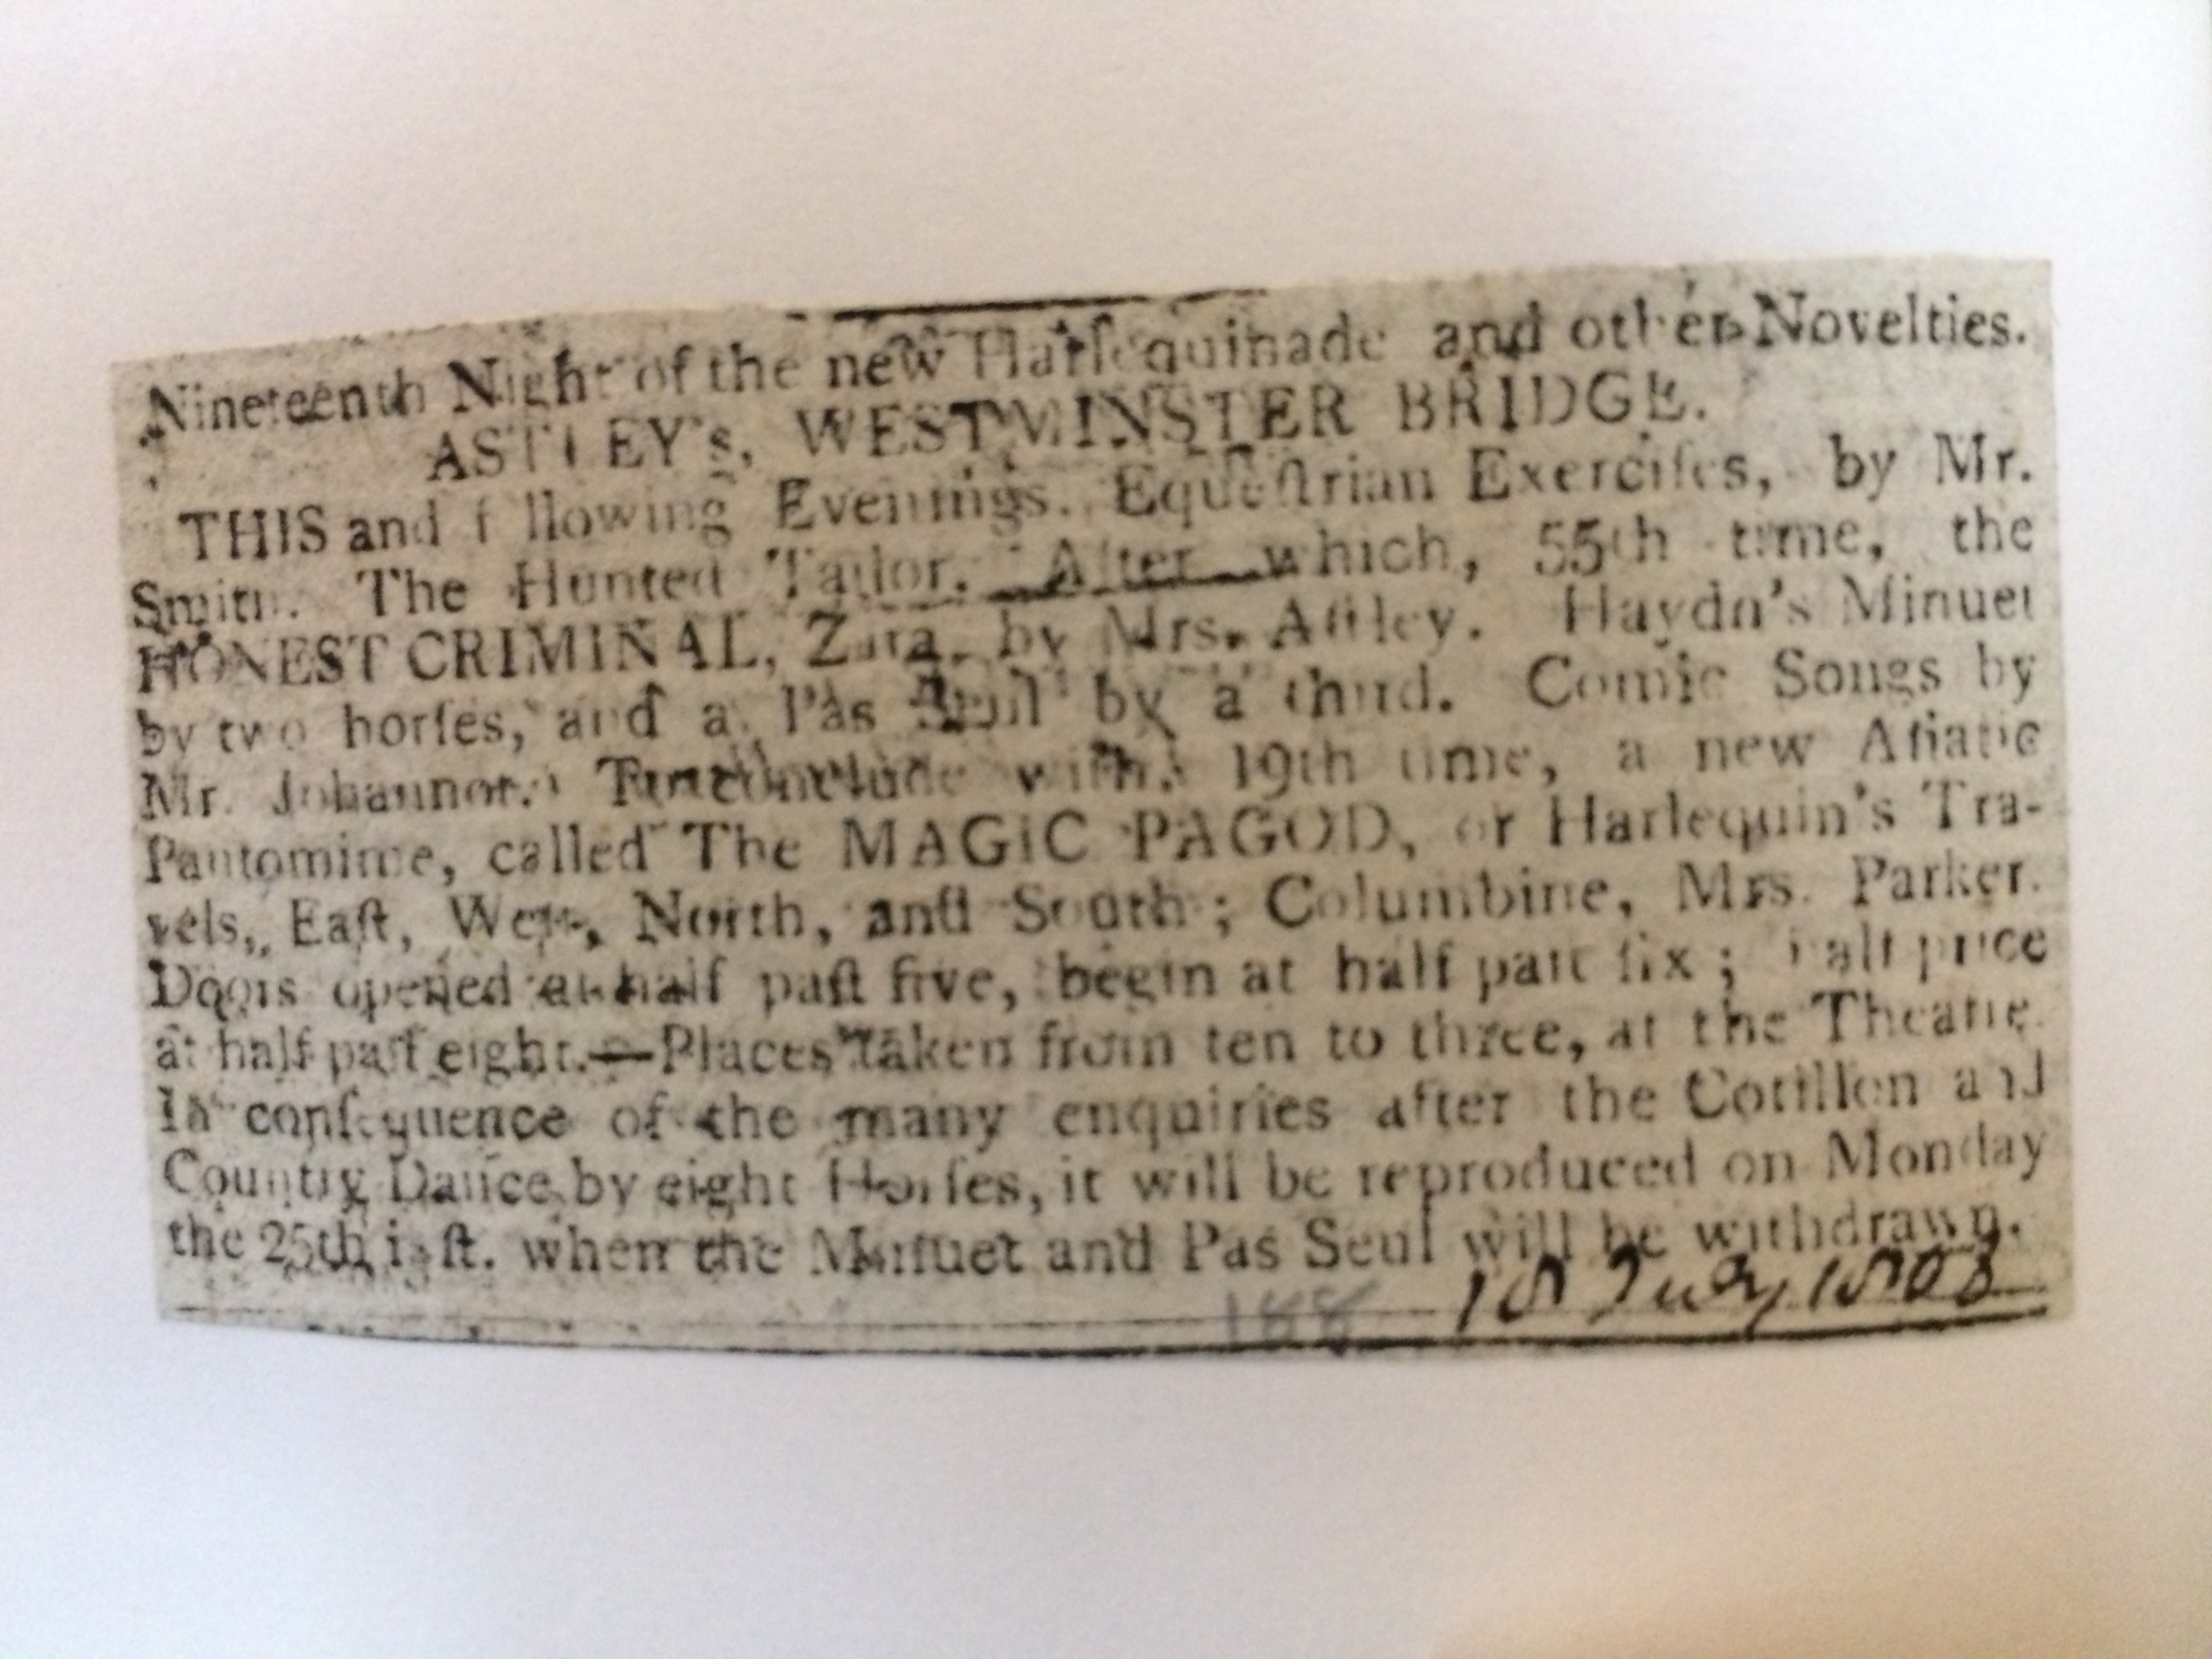 Nineteenth Night of the new Harlequinade and other Novelties.
ASTLEY's, WESTMINSTER BRIDGE.
THIS and following Evenings. Equeſtrian Exerciſes, by Mr.
Smith. The Hunted Tailor. After which, 55th time, the
HONEST CRIMINAL, Zara, by Mrs. Aſtley. Haydn's Minuet
by two horſes, and a Pas Seul by a third. Comic Songs by
Mr. Johannot. To conclude with, 19th time, a new Aſiatic
Pantomime, called The MAGIC PAGOD, or Harlequin's Tra-
vels, Eaſt, Weſt, North, and South; Columbine, Mrs. Parker.
Doors opened at half paſt five, begin at half paſt ſix; half price
at half paſt eight.—Places taken from ten to three, at the Theatre.
In conſequence of the many enquiries after the Cotillon and
Country Dance by eight Horſes, it will be reproduced on Monday
the 25th inſt. when the Minuet and Pas Seul will be withdrawn.
188 18 July 1808